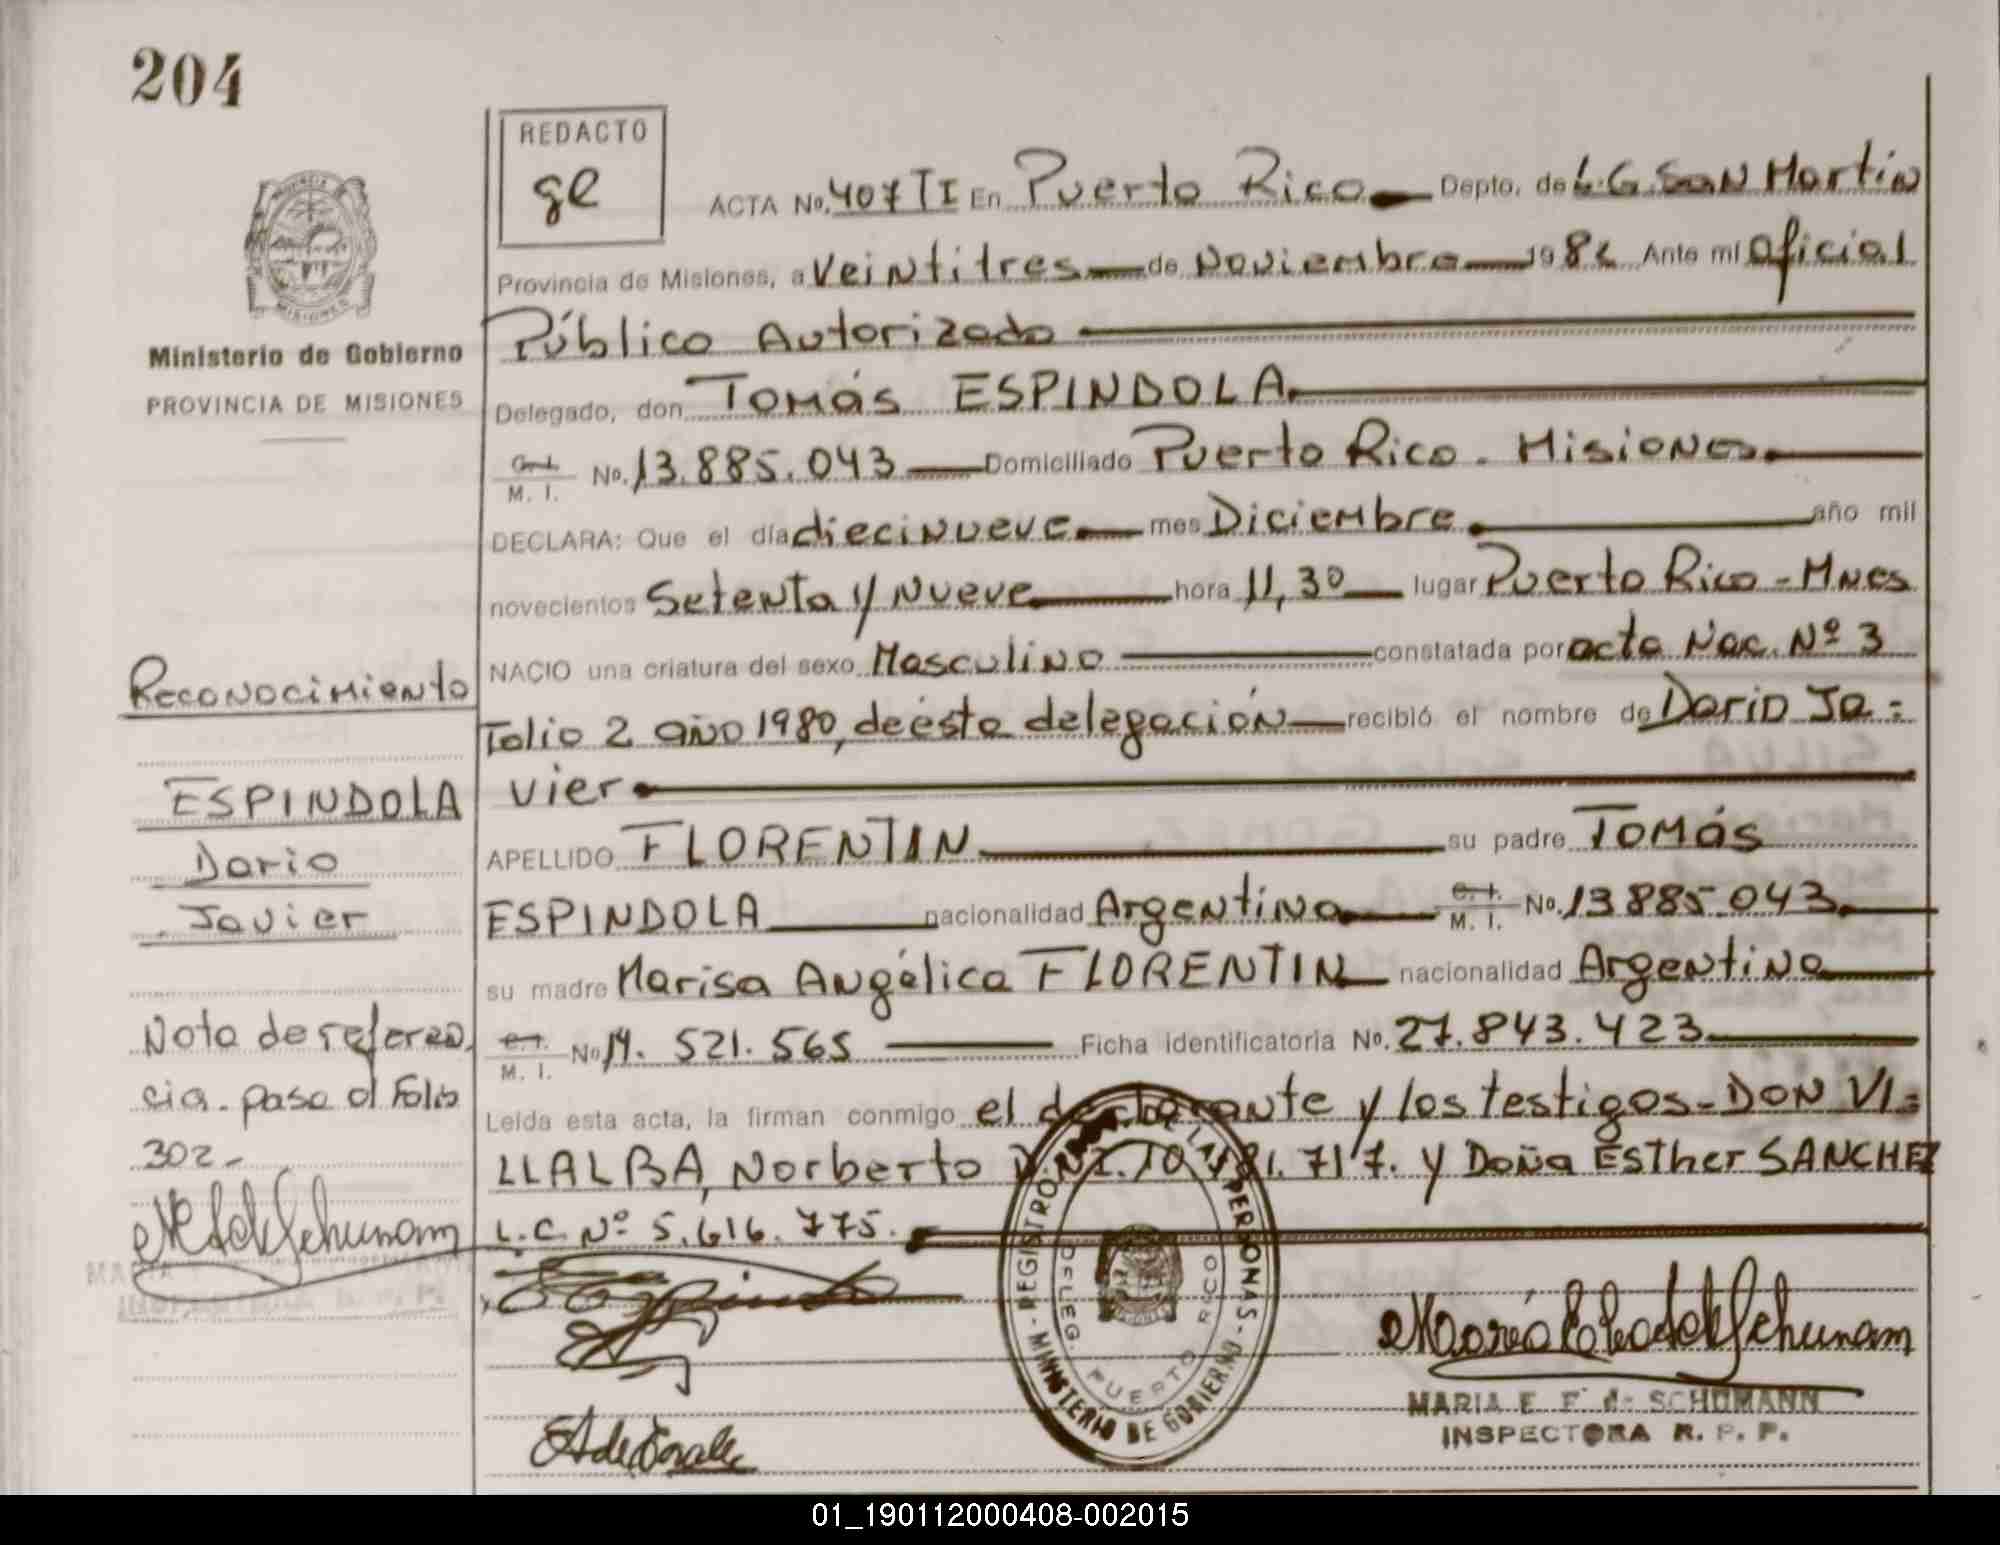 204
REDACTO
ge
ACTA No. 407 TI En Puerto Rico Depto. de L.G. San Martín
Provincia de Misiones, a Veintitres de Noviembre 1982 Ante mí Oficial
Público Autorizado
Ministerio de Gobierno
PROVINCIA DE MISIONES
Delegado, don Tomás ESPINDOLA
C.I. M. I. No. 13.885.043 Domiciliado Puerto Rico - Misiones
DECLARA: Que el día diecinueve mes Diciembre año mil
novecientos Setenta y Nueve hora 11,30 lugar Puerto Rico - Mnes
NACIO una criatura del sexo Masculino constatada por acta Nac. Nº 3
Folio 2 año 1980, de ésta delegación recibió el nombre de Dario Ja=
vier
APELLIDO FLORENTIN su padre Tomás
ESPINDOLA nacionalidad Argentina C.I. M. I. No. 13885.043
su madre Marisa Angélica FLORENTIN nacionalidad Argentina
C.I. M. I. No 14. 521. 565 Ficha identificatoria No. 27.843.423
Leída esta acta, la firman conmigo el declarante y los testigos - DON VI=
LLALBA, Norberto D.N.I. 10. 717. y Doña Esther SANCHEZ
L.C. Nº 5.616.775.
Reconocimiento
ESPINDOLA
Dario
Javier
Nota de referen
cia - pasa al Folio
302 -
REGISTRO DE LAS PERSONAS - MINISTERIO DE GOBIERNO -
DELEG. PUERTO RICO
MARIA E. F. de SCHUMANN
INSPECTORA R. P. P.
01_190112000408-002015